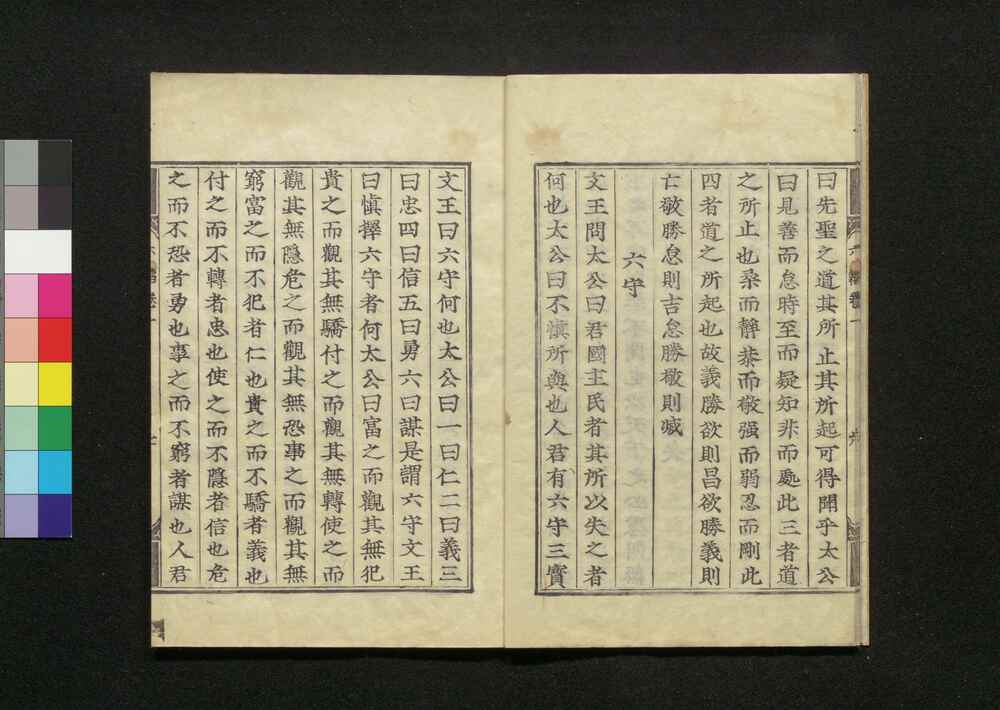 曰先聖之道其所止其所起可得聞乎太公
曰見善而怠時至而疑知非而處此三者道
之所止也柔而靜恭而敬强而弱忍而剛此
四者道之所起也故義勝欲則昌欲勝義則
亡敬勝怠則吉怠勝敬則滅
六守
文王問太公曰君國主民者其所以失之者
何也太公曰不慎所與也人君有六守三寶
文王曰六守何也太公曰一曰仁二曰義三
曰忠四曰信五曰勇六曰謀是謂六守文王
曰慎擇六守者何太公曰富之而觀其無犯
貴之而觀其無驕付之而觀其無轉使之而
觀其無隱危之而觀其無恐事之而觀其無
窮富之而不犯者仁也貴之而不驕者義也
付之而不轉者忠也使之而不隱者信也危
之而不恐者勇也事之而不窮者謀也人君